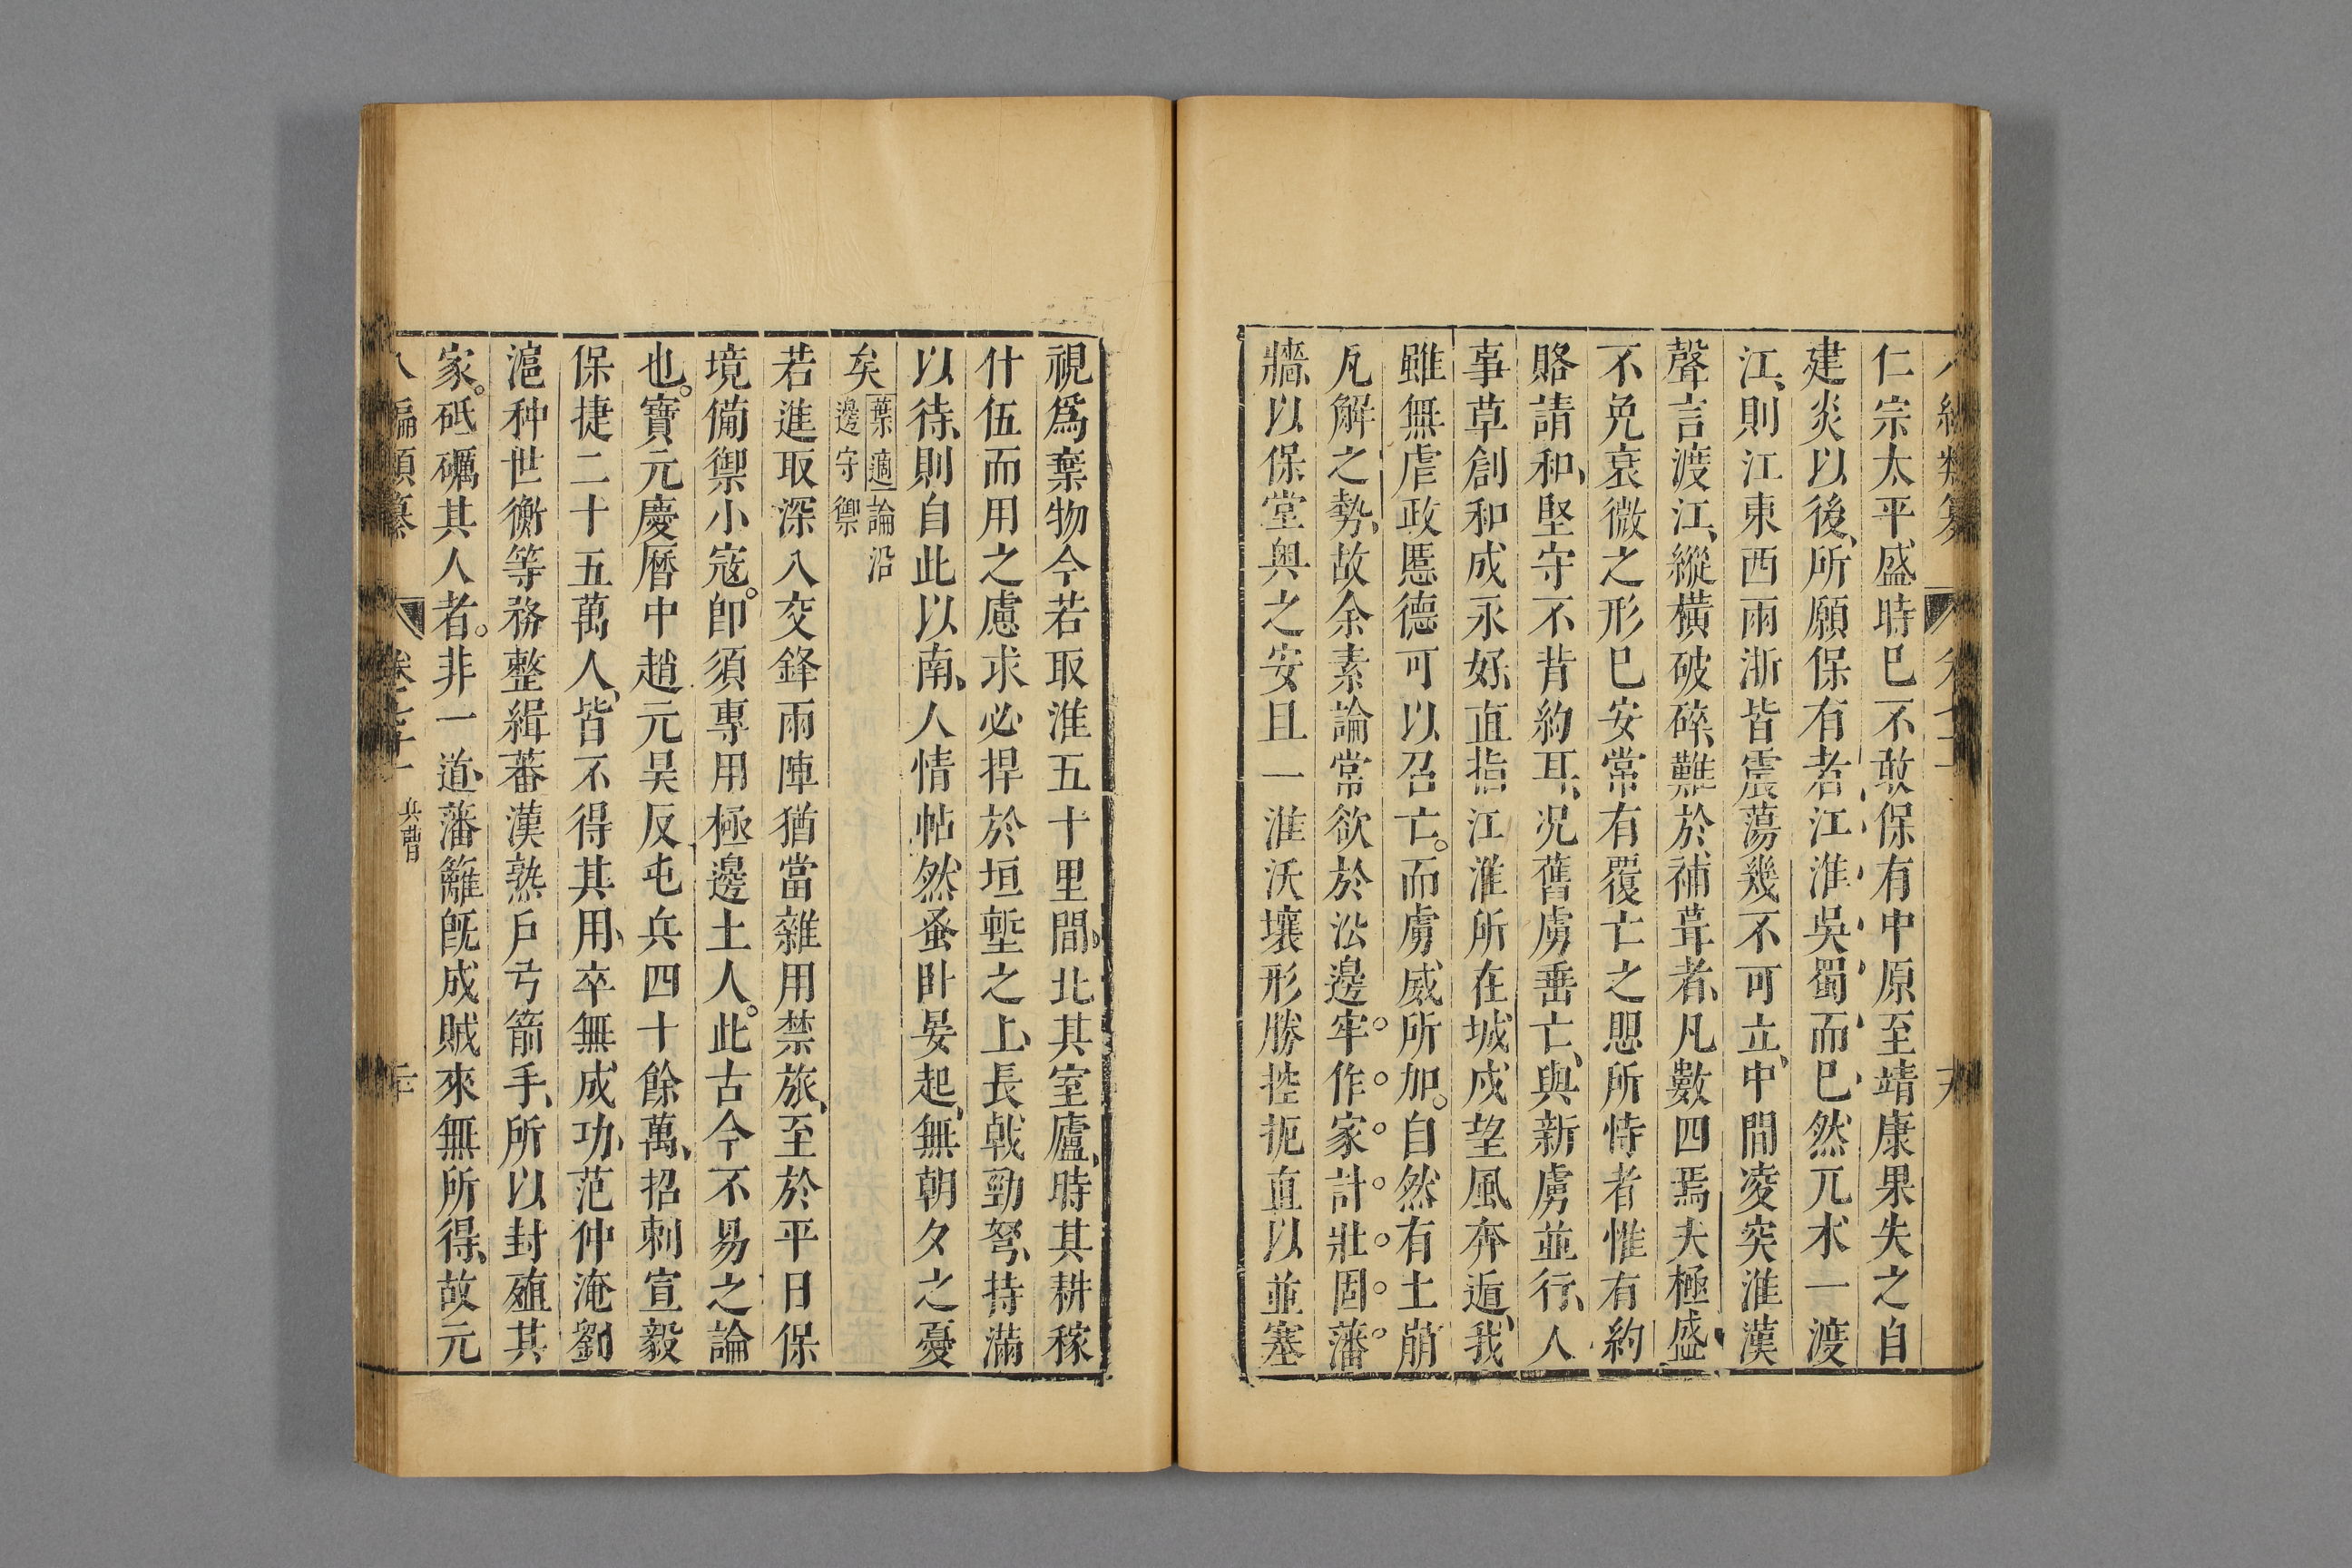 仁宗太平盛時巳不敢保有中原至靖康果失之自
建炎以後、所願保有者、江、淮、吳、蜀、而巳、然兀朮一渡
江、則江東西兩浙皆震蕩幾不可立、中間凌突淮漢
聲言渡江、縱橫破碎、難於補葺者、凡數四焉夫極盛
不免衰微之形巳安常有覆亡之恖所恃者惟有約
賂請和、堅守不背約耳、况舊虜垂亡、與新虜並行、人
事草創和成永好、直指江淮所在城戍望風奔遁、我
雖無虐政慝德可以召亡。而虜威所加。自然有土崩
瓦解之勢、故余素論常欲於㳂邊牢作家計壯固藩
牆、以保堂奧之安且一淮沃壤形勝控扼直以並塞
視爲棄物今若取淮五十里間。北其室廬、時其耕稼
什伍而用之慮求必捍於垣塹之上、長戟勁弩、持滿
以待、則自此以南、人情帖然蚤卧晏起、無朝夕之憂
矣葉適論沿邊守禦
若進取深入交鋒兩陣猶當雜用禁旅、至於平日保
境備禦小寇。卽須專用極邊土人。此古今不易之論
也。寶元慶曆中趙元昊反屯兵四十餘萬、招刺宣毅
保捷二十五萬人、皆不得其用、卒無成功、范仲淹劉
滬种世衡等務整緝蕃漢熟戶弓箭手、所以封殖其
家。砥礪其人者。非一道、藩籬旣成賊來無所得、故元
八編類纂 卷七十一 兵曹